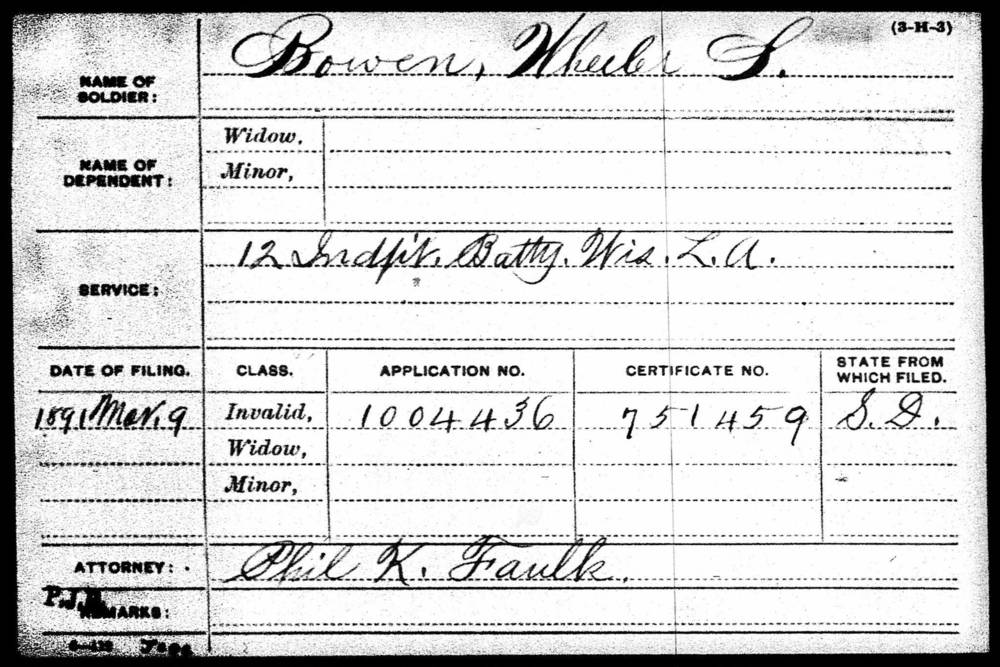 (3-H-3)
NAME OF SOLDIER: Bowen, Wheeler S.
NAME OF DEPENDENT:
Widow,
Minor,
SERVICE: 12 Indpt. Batty. Wis. L. A.
DATE OF FILING. CLASS. APPLICATION NO. CERTIFICATE NO. STATE FROM WHICH FILED.
1891 Mar. 9 Invalid, 1004436 751459 S. D.
Widow,
Minor,
ATTORNEY: Phil K. Faulk.
REMARKS: